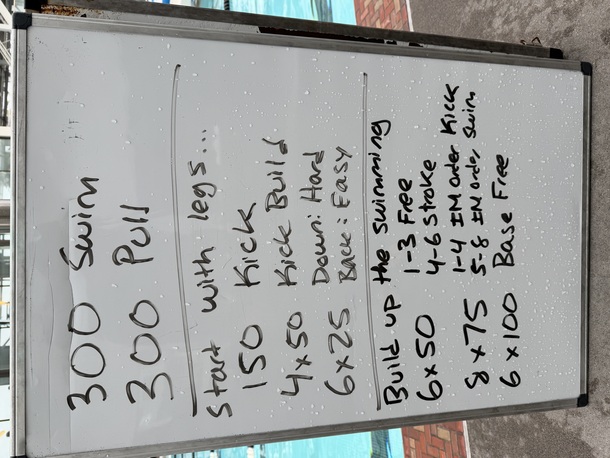 300 Swim
300 Pull
Start with legs...
150 Kick
4x50 Kick Build
6x25 Down: Hard
Back: Easy
Build up the swimming
6x50 1-3 Free
4-6 Stroke
8x75 1-4 IM order Kick
5-8 IM order Swim
6x100 Base Free